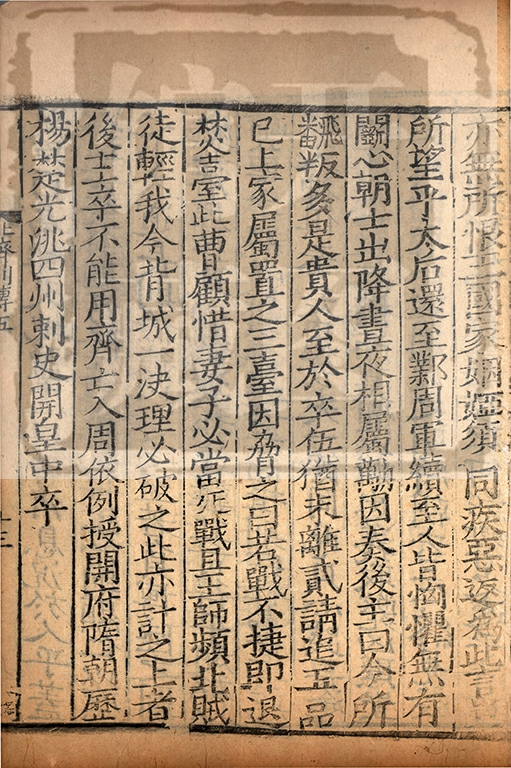 亦無所恨王國家姻婭須同疾惡返為此言豈
所望乎太后還至鄴周軍續至人皆恟懼無有
鬬心朝士出降晝夜相屬勱因奏後主曰今所
飜叛多是貴人至於卒伍猶未離貳請追五品
已上家屬置之三臺因脅之曰若戰不捷即退
焚臺此曹顧惜妻子必當死戰且王師頻北賊
徒輕我今背城一決理必破之此亦計之上者
後主卒不能用齊亡入周依例授開府隋朝歷
楊楚光洮四州刺史開皇中卒
北齊列傳五
十三